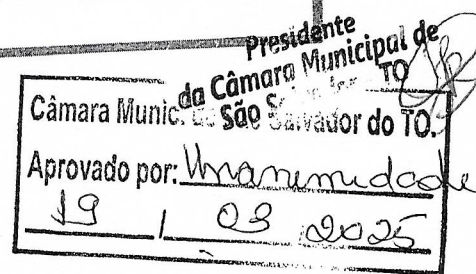 Presidente
da Câmara Municipal de
São Salvador TO
Câmara Munic. de São Salvador do TO.
Aprovado por: Unanimidade
19 / 03 2025